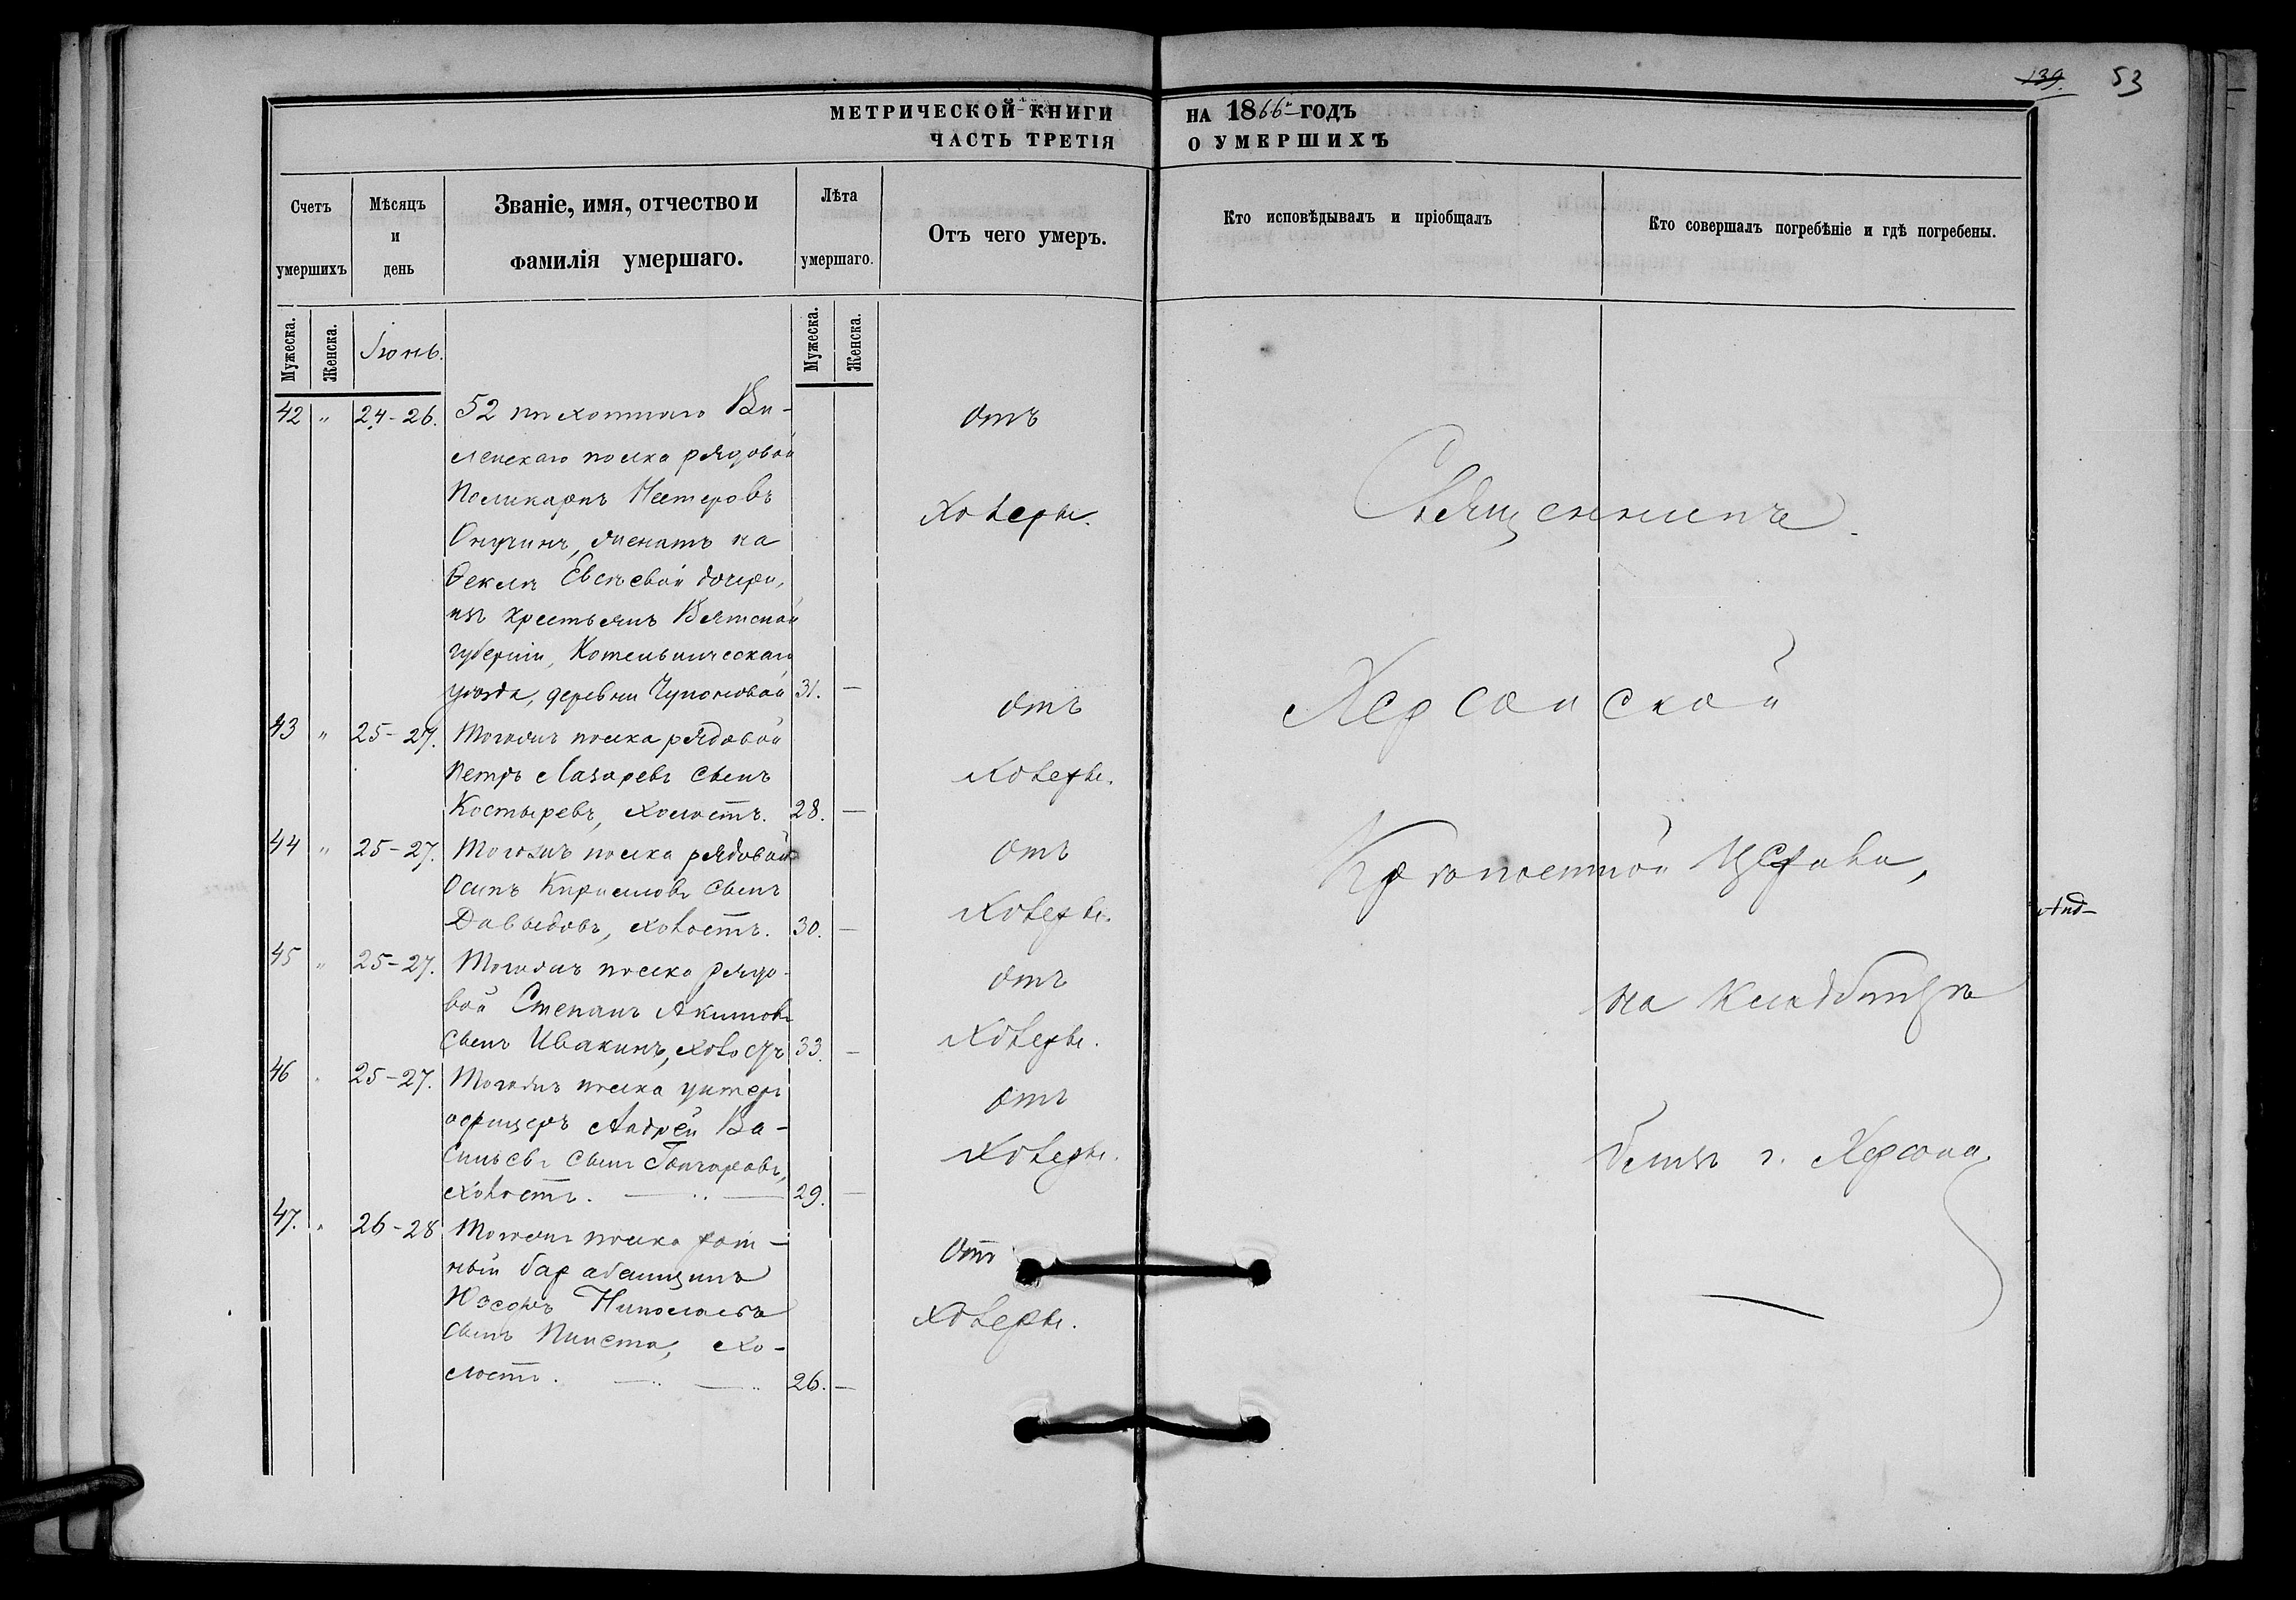 139. 53
МЕТРИЧЕСКОЙ КНИГИ НА 1866й ГОДЪ
ЧАСТЬ ТРЕТІЯ О УМЕРШИХЪ
Счетъ умершихъ
Мѣсяцъ и день
Званіе, имя, отчество и фамилія умершаго.
Лѣта умершаго.
Отъ чего умеръ.
Кто исповѣдывалъ и пріобщалъ
Кто совершалъ погребѣніе и гдѣ погребены.
Мужеска. Женска. Іюнь. Мужеска. Женска.
42 " 24-26. 52 пѣхотнаго Ви- отъ
ленскаго полка рядовой
Поликарпъ Нестеровъ холеры.
женатъ на
Феклѣ Евсѣевой дочери,
изъ крестьянъ Вятской
губерніи, Котельническаго
уѣзда, деревни 31. —
43 " 25-27. Тогожъ полка рядовой отъ
Петръ Лазаревъ сынъ холеры.
Костыревъ, холостъ. 28. —
44 " 25-27. Тогожъ полка рядовой отъ
Осипъ Кириловъ сынъ
Давыдовъ, холостъ. 30. — холеры.
45 " 25-27. Тогожъ полка рядо- отъ
вой Степанъ Акимовъ
сынъ Ивакинъ, холостъ 33. — холеры.
46 " 25-27. Тогожъ полка унтеръ отъ
офицеръ Андрей Ва-
сильевъ сынъ Гончаровъ, холеры.
холостъ. 29. —
47. " 26-28 Тогожъ полка рот- отъ
ный барабанщикъ
Юзефъ Николаевъ холеры.
сынъ хо-
лостъ. 26. —
Священникъ
Херсонской
Крѣпостной Церкви,
на кладбищѣ
близъ г. Херсона.